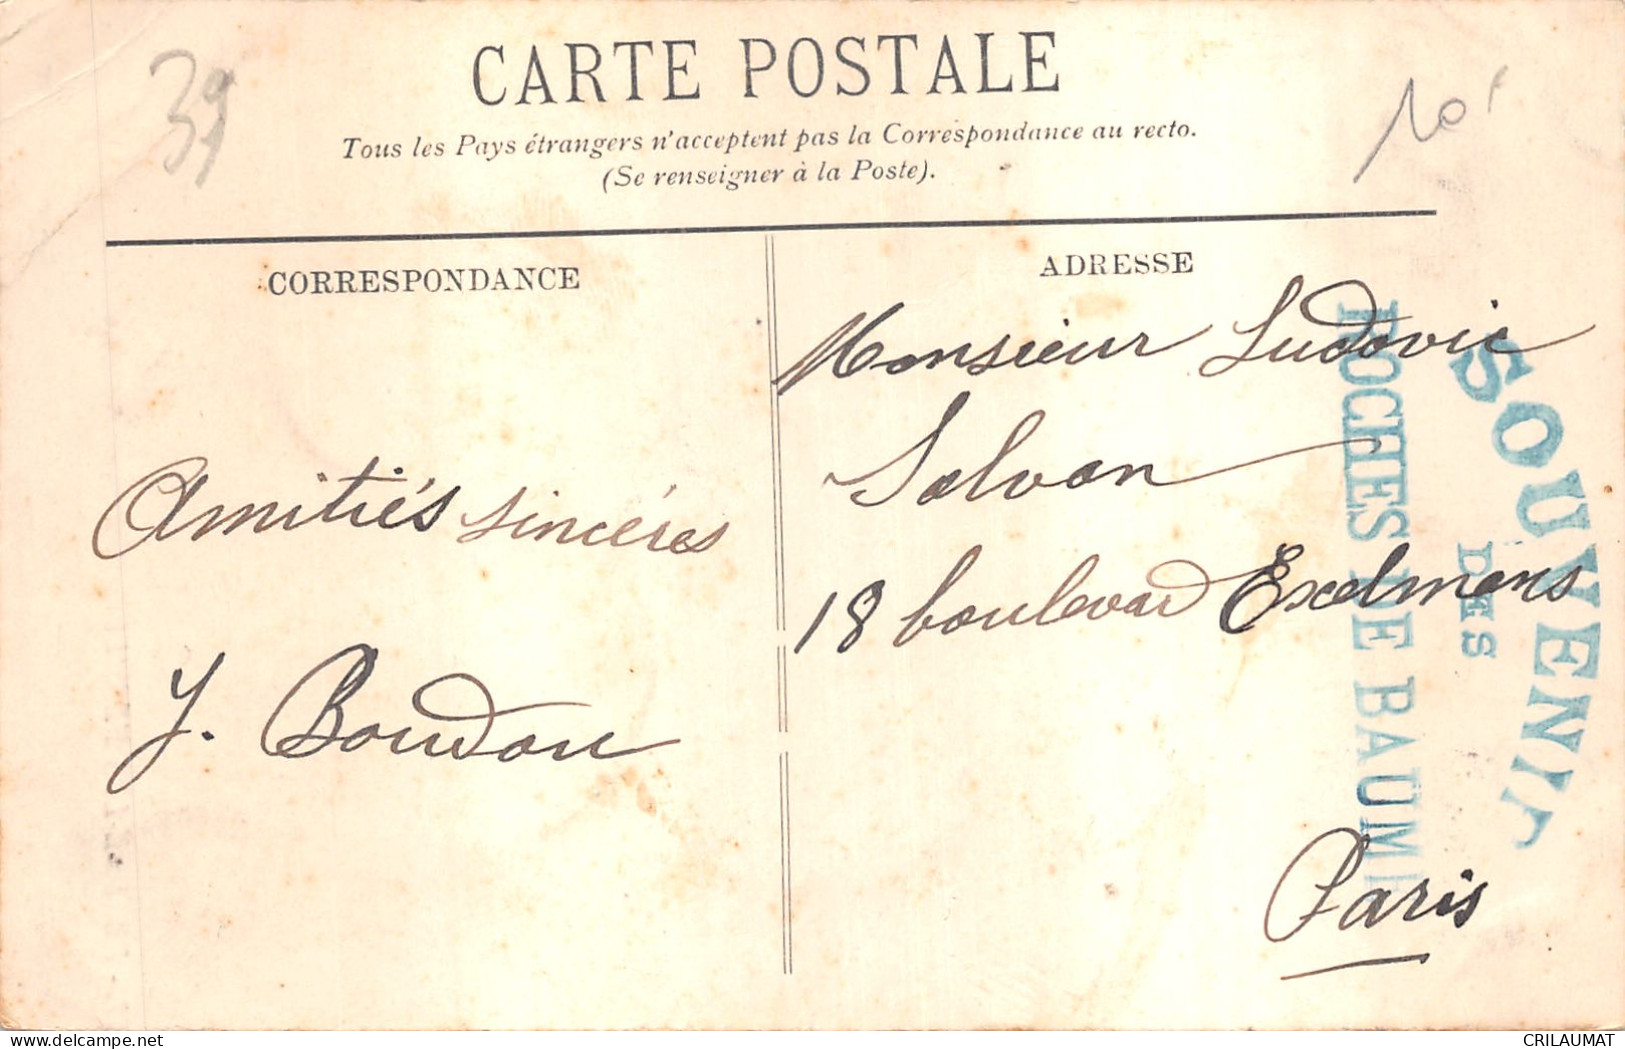 CARTE POSTALE
Tous les Pays étrangers n'acceptent pas la Correspondance au recto.
(Se renseigner à la Poste).
39
10f
CORRESPONDANCE
Amitiés sincéres
J. Boudou
ADRESSE
Monsieur Ludovic
Salvan
18 boulevard Exelmans
Paris
SOUVENIR
DES
ROCHES DE BAUME
delcampe.net
CRILAUMAT